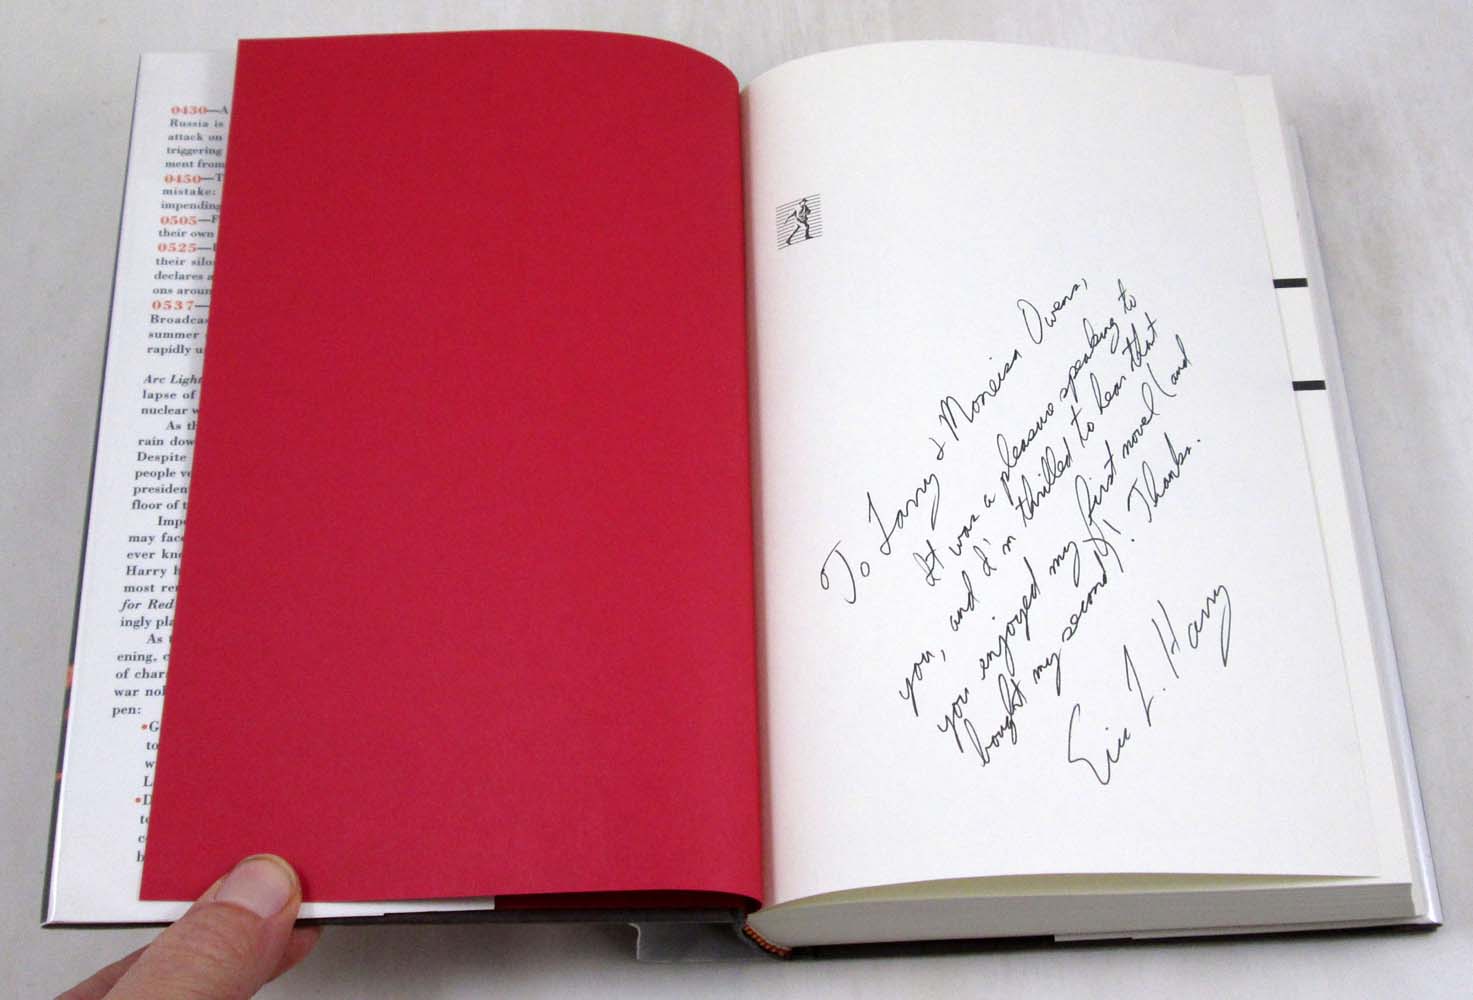 0430—A
Russia is
attack on
triggering
ment from
0450—T
mistake:
impending
0505—F
their own
0525—
their silo
declares a
ons aroun
0537—
Broadcas
summer
rapidly u
Arc Light
lapse of
nuclear w
As th
rain dow
Despite
people ve
presiden
floor of t
Impe
may face
ever kno
Harry h
most re
for Red
ingly pla
As t
ening, c
of char
war nol
pen:
•G
to
w
L
•D
to
c
b
To Larry & Moneisa Owens,
It was a pleasure speaking to
you, and I'm thrilled to hear that
you enjoyed my first novel (and
bought my second)! Thanks.
Eric L. Harry